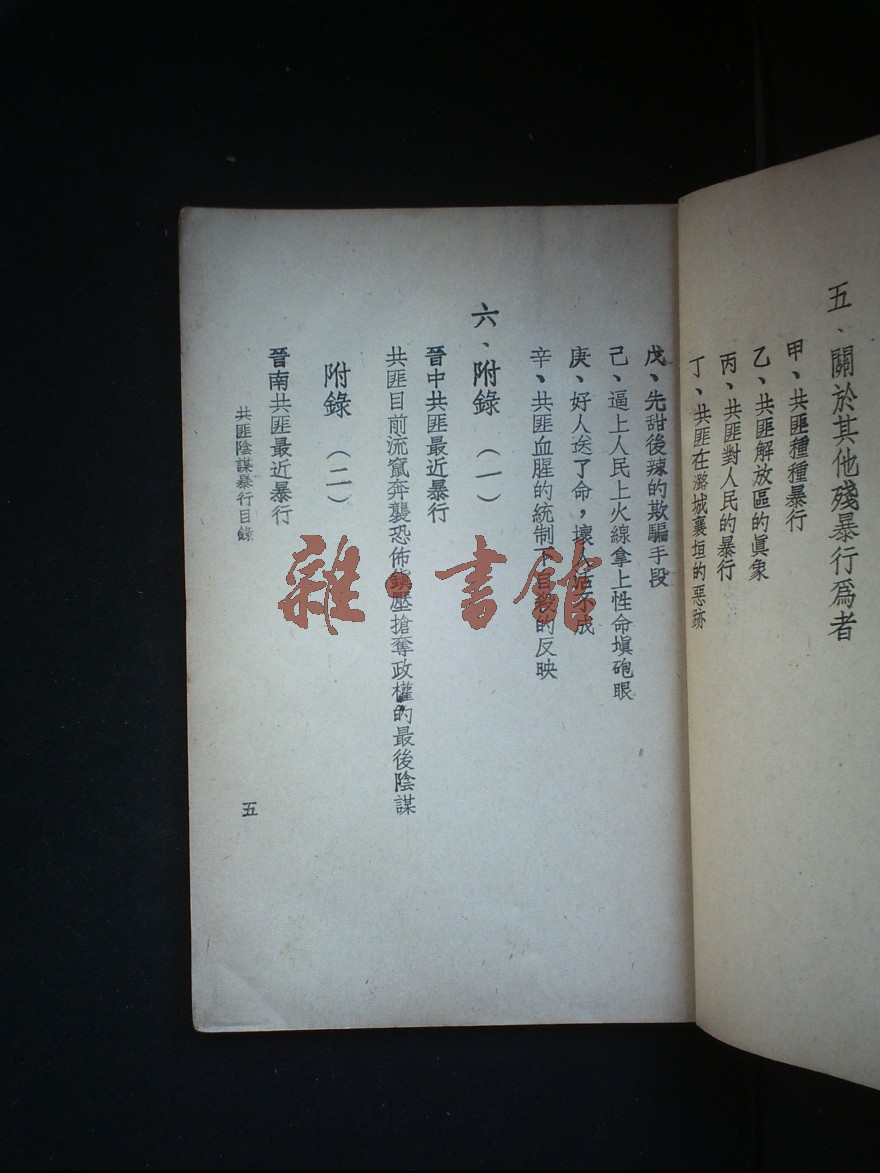 五、關於其他殘暴行爲者
甲、共匪種種暴行
乙、共匪解放區的眞象
丙、共匪對人民的暴行
丁、共匪在潞城襄垣的惡跡
戊、先甜後辣的欺騙手段
己、逼上人民上火線拿上性命塡砲眼
庚、好人送了命，壞人活不成
辛、共匪血腥的統制下自殺的反映
六、附錄（一）
晉中共匪最近暴行
共匪目前流竄奔襲恐佈鎭壓搶奪政權的最後陰謀
附錄（二）
晉南共匪最近暴行
共匪陰謀暴行目錄
五
雜·書館